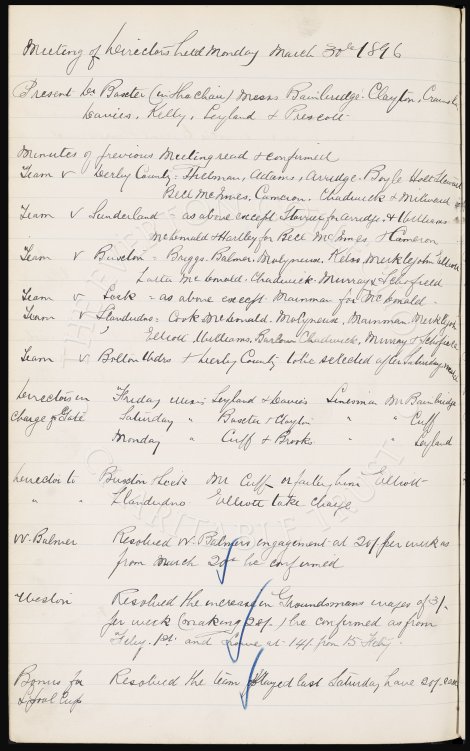 Meeting of Directors held Monday March 30th 1896
Present Dr Baxter (in the chair) Messrs Bainbridge. Clayton,
Davies, Kelly, Leyland & Prescott
Minutes of previous Meeting read & confirmed
Team v Derby County = Hillman, Adams, Arridge. Boyle Holt Stewart
Bell McInnes, Cameron, Chadwick & Milward
Team v Sunderland = as above except Storrier for Arridge, & Williams
McDonald & Hartley for Bell McInnes & Cameron
Team v Buxton = Briggs. Balmer. Molyneux, Kelso Meiklejohn Elliott
McDonald. Chadwick. Murray & Schofield
Team v Leek = as above except Mainman for McDonald
Team v Llandudno = Cook McDonald. Molyneux, Mainman, Meiklejohn
Elliott Williams. Barlow Chadwick, Murray & Schofield
Team v Bolton Wdrs & Derby County to be selected after Saturday
Directors in Friday Messrs Leyland & Davies Linesman Mr Bainbridge
charge of Gate Saturday " Baxter & Clayton " " Cuff
Monday " Cuff & Brooks " " Leyland
Director to Buxton & Leek Mr Cuff or failing him Elliott
" " Llandudno Elliott take charge
W. Balmer Resolved W. Balmers engagement at 20/ per week as
from March 20th be confirmed
Weston Resolved the increase in Groundsmans wages of 3/-
per week (making 28/.) be confirmed as from
Feby. 1st. and Lowe at 14/ from 15 Feby
Bonus for Resolved the team played last Saturday have 20/. each
Lpool Cup